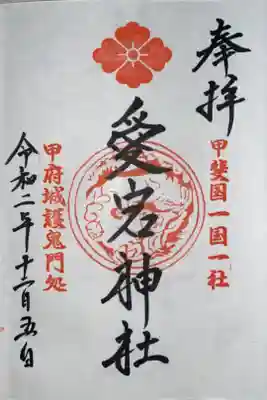 奉拝
甲斐国一国一社
愛宕神社
甲府城護鬼門処
令和二年十一月五日